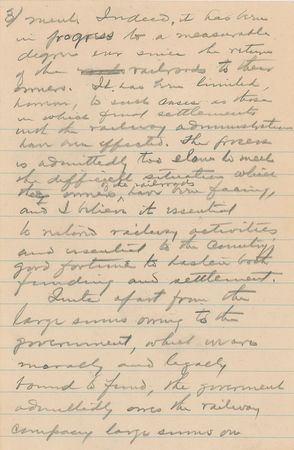 3/ ment. Indeed, it has been
in progress to a measurable
degree ever since the return
of the railroads to their
owners. It has been limited,
however, to such cases as those
in which final settlements
with the railway administration
have been effected. The process
is admittedly too slow to meet
the difficult situation which
the owners of the railroads have been facing,
and I believe it essential
to restore railway activities
and essential to the country's
good fortune to hasten both
funding and settlement.
Quite apart from the
large sums owing to the
government, which we are
morally and legally
bound to fund, the government
admittedly owes the railway
company large sums on